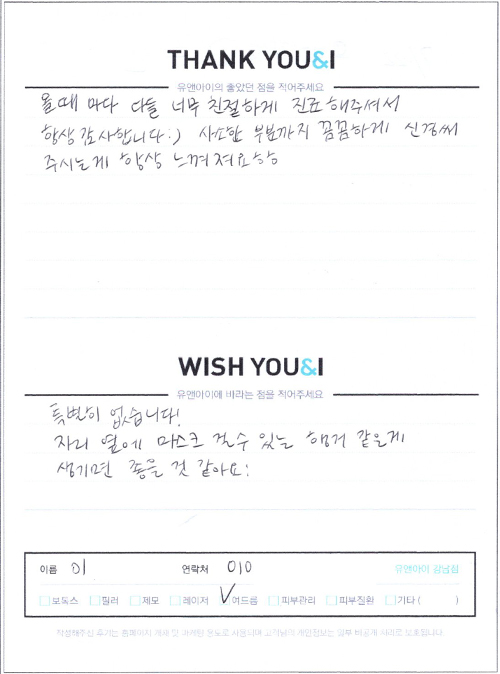 THANK YOU&I
유앤아이의 좋았던 점을 적어주세요
올때 마다 다들 너무 친절하게 진료해주셔서
항상 감사합니다:) 사소한 부분까지 꼼꼼하게 신경써
주시는게 항상 느껴져요ㅎㅎ
WISH YOU&I
유앤아이에 바라는 점을 적어주세요
특별히 없습니다!
자리 옆에 마스크 걸수 있는 행거 같은게
생기면 좋을 것 같아요!
이름 이 연락처 010 유앤아이 강남점
보톡스 필러 제모 레이저 여드름 피부관리 피부질환 기타 ( )
작성해주신 후기는 홈페이지 게재 및 마케팅 용도로 사용되며 고객님의 개인정보는 일부 비공개 처리로 보호됩니다.